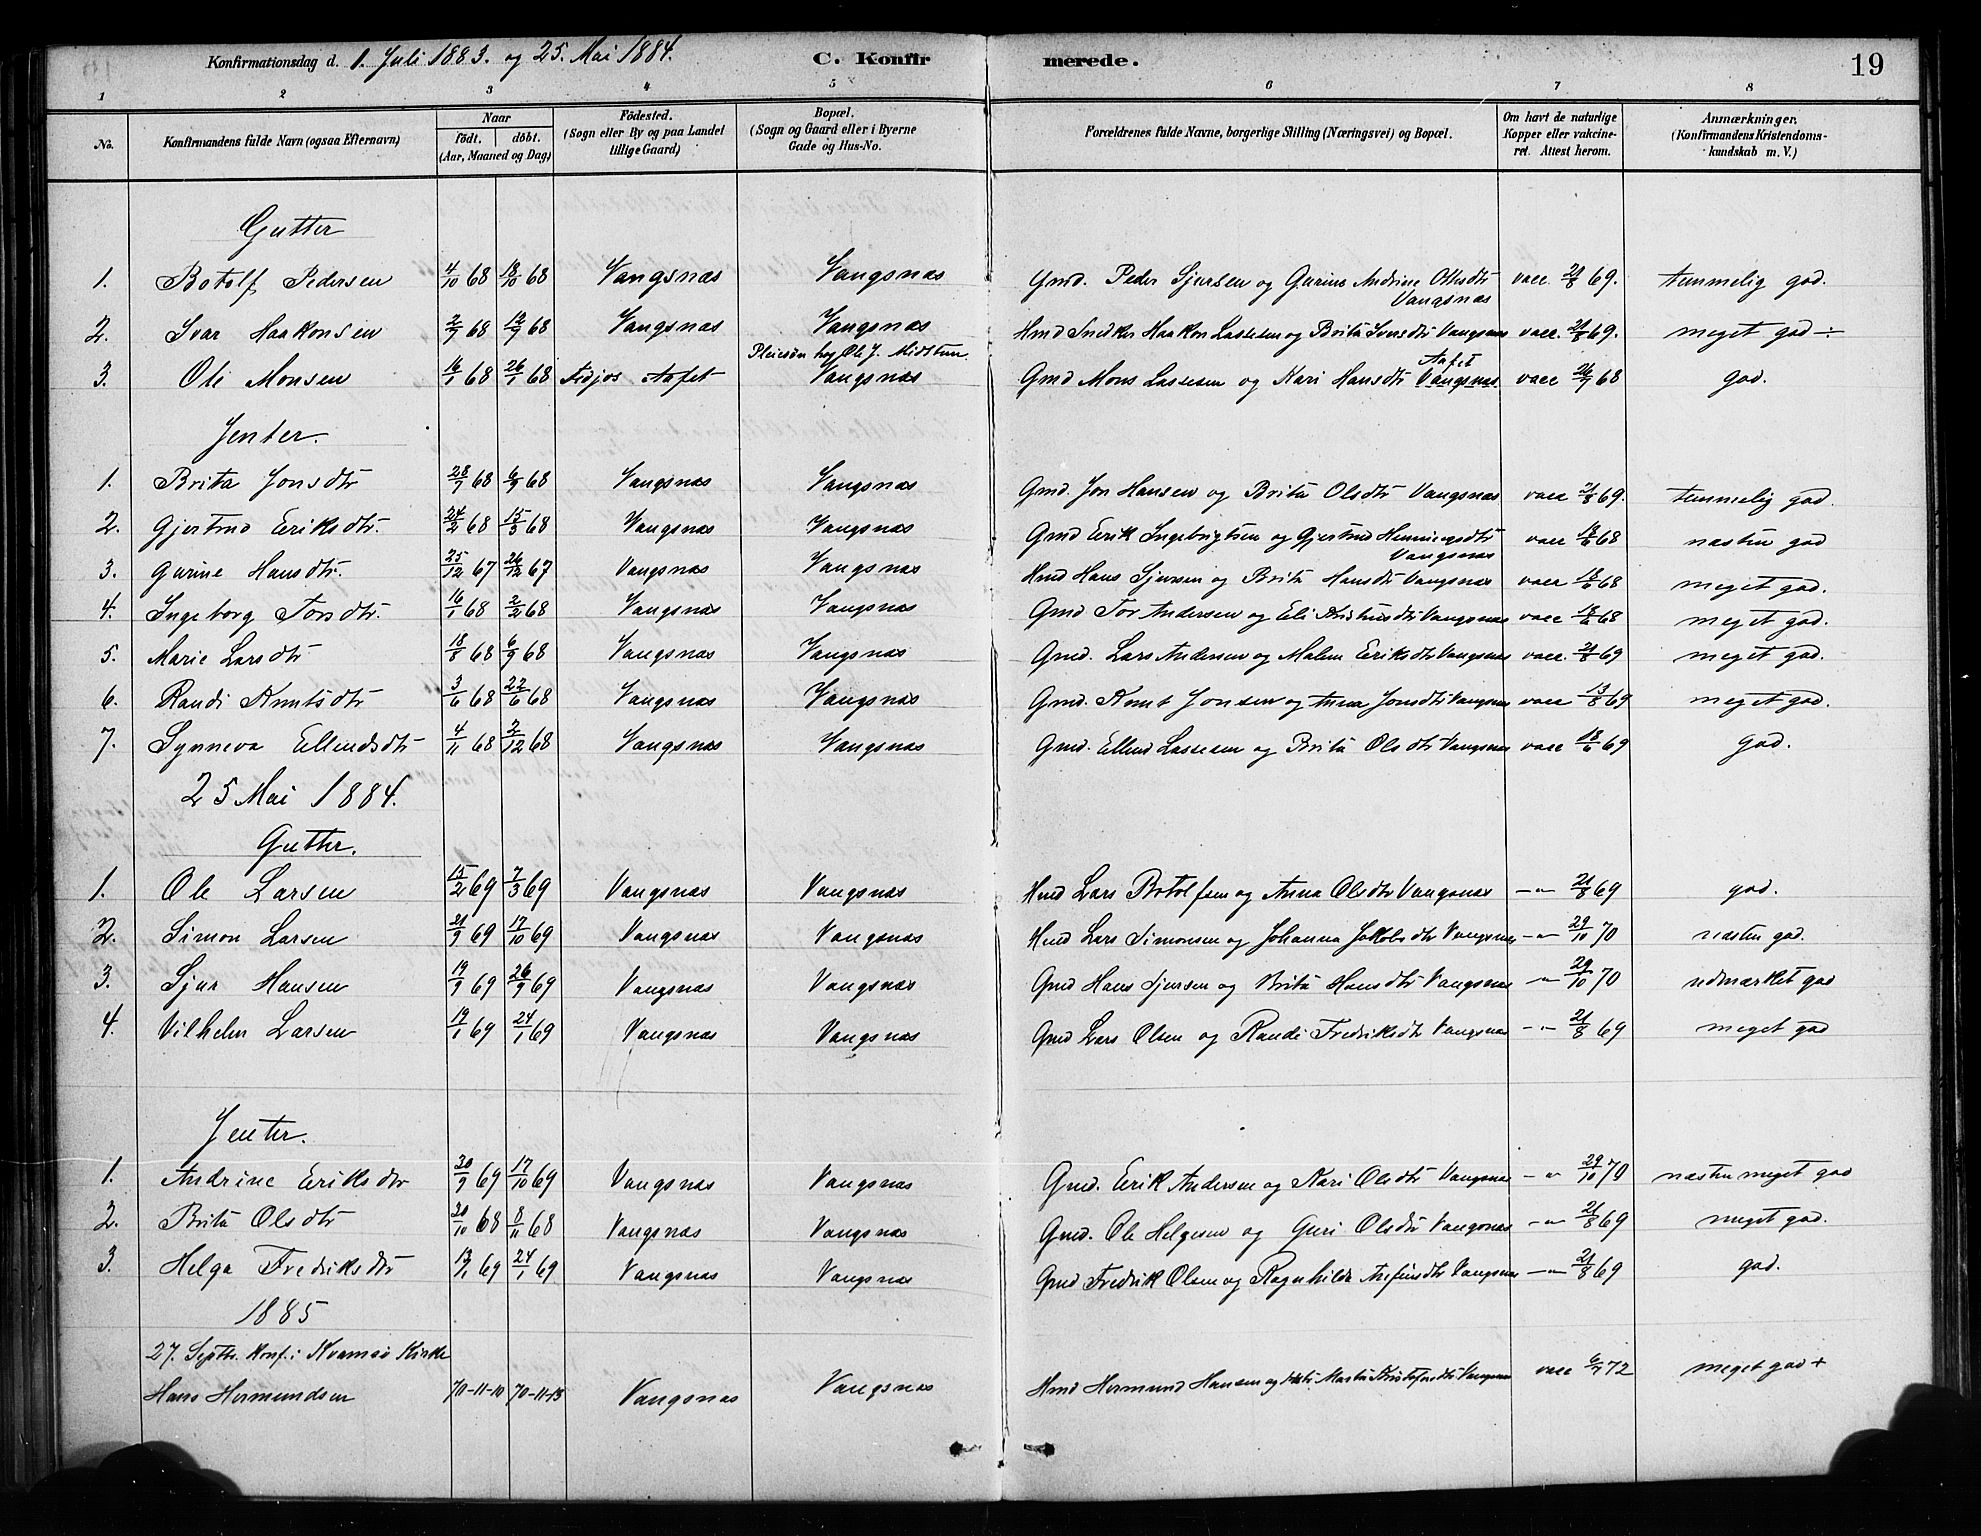 Konfirmationsdag d. 1. Juli 1883. og 25. Mai 1884. C. Konfirmerede. 19
1 2 3 4 5 6 7 8
No. Konfirmandens fulde Navn (ogsaa Efternavn) Naar født. døbt. (Aar, Maaned og Dag) Fødested. (Sogn eller By og paa Landet tillige Gaard) Bopæl. (Sogn og Gaard eller i Byerne Gade og Hus-No. Forældrenes fulde Navne, borgerlige Stilling (Næringsvei) og Bopæl. Om havt de naturlige Kopper eller vakcineret. Attest herom. Anmærkninger. (Konfirmandens Kristendomskundskab m. V.)
Gutter
1. Botolf Pedersen 4/10 68 18/10 68 Vangsnæs Vangsnæs Gmd. Peder Sjursen og Gurine Andrine Olsdtr Vangsnæs vacc. 21/8 69. temmelig god.
2. Ivar Haakonsen 2/7 68 12/7 68 Vangsnæs Vangsnæs Hmd Snedker Haakon Lassesen og Brita Iversdtr Vangsnæs vacc. 21/8 69. meget god ÷
3. Ole Monsen 16/1 68 26/1 68 Tidjos Aafet Pleiesøn hog Ole J. Midtun Vangsnæs Gmd Mons Lassesen og Kari Hansdtr Aafet Vangsnæs vacc 26/7 68 god.
Jenter.
1. Brita Jonsdtr 28/7 68 6/9 68 Vangsnæs Vangsnæs Gmd. Jon Hansen og Brita Olsdtr Vangsnæs vacc 21/8 69. temmelig god.
2. Gjertrud Eriksdtr. 24/2 68 15/3 68 Vangsnæs Vangsnæs Gmd Erik Ingebrigtsen og Gjertrud Henningsdtr Vangsnæs vacc 18/6 68 næsten god
3. Gurine Hansdtr. 25/12 67 26/12 67 Vangsnæs Vangsnæs Hmd Hans Sjursen og Brita Hansdtr Vangsnæs vacc 18/6 68 meget god.
4. Ingeborg Torsdtr. 16/1 68 2/2 68 Vangsnæs Vangsnæs Gmd Tor Andersen og Eli Vangsnæs vacc 18/6 68 meget god.
5. Marie Larsdtr 18/8 68 6/9 68 Vangsnæs Vangsnæs Gmd. Lars Andersen og Malene Eriksdtr Vangsnæs vacc. 21/8 69 meget god.
6. Randi Knutsdtr 3/6 68 22/6 68 Vangsnæs Vangsnæs Gmd. Knut Jonsen og Anna Jonsdtr Vangsnæs vacc 13/8 69 meget god.
7. Synneva Ellendsdtr 4/11 68 2/12 68 Vangsnæs Vangsnæs Gmd. Ellend Lassesen og Brita Olsdtr Vangsnæs vacc 18/6 69 god.
25 Mai 1884.
Gutter.
1. Ole Larsen 15/2 69 7/3 69 Vangsnæs Vangsnæs Hmd Lars Botolfsen og Anna Olsdtr Vangsnæs —„— 21/8 69 god.
2. Simon Larsen 21/9 69 17/10 69 Vangsnæs Vangsnæs Hmd Lars Simonsen og Johanna Jakobsdtr Vangsnæs —„— 29/10 70 næsten god.
3. Sjur Hansen 19/9 69 26/9 69 Vangsnæs Vangsnæs Gmd Hans Sjursen og Brita Hansdtr Vangsnæs —„— 29/10 70 udmærket god
4. Vilhelm Larsen 19/1 69 24/1 69 Vangsnæs Vangsnæs Gmd Lars Olsen og Randi Fredriksdtr Vangsnæs —„— 21/8 69 meget god
Jenter.
1. Andrine Eriksdtr 20/9 69 17/10 69 Vangsnæs Vangsnæs Gmd. Erik Andersen og Kari Olsdtr Vangsnæs —„ 29/10 70 næsten meget god
2. Brita Olsdtr 30/10 68 8/11 68 Vangsnæs Vangsnæs Gmd. Ole Helgesen og Guri Olsdtr Vangsnæs —„— 21/8 69 meget god.
3. Helga Fredriksdtr 13/1 69 24/1 69 Vangsnæs Vangsnæs Gmd Fredrik Olsen og Ragnhilda Arfinsdtr Vangsnæs —„— 21/8 69 god.
1885
27. Septbr. konf. i Kvamsø Kirke
Hans Hermundsen 70-11-10 70-11-13 Vangsnæs Vangsnæs Hmd Hermund Hansen og Marta Kristofersdtr Vangsnæs vacc 6/7 72 meget god +